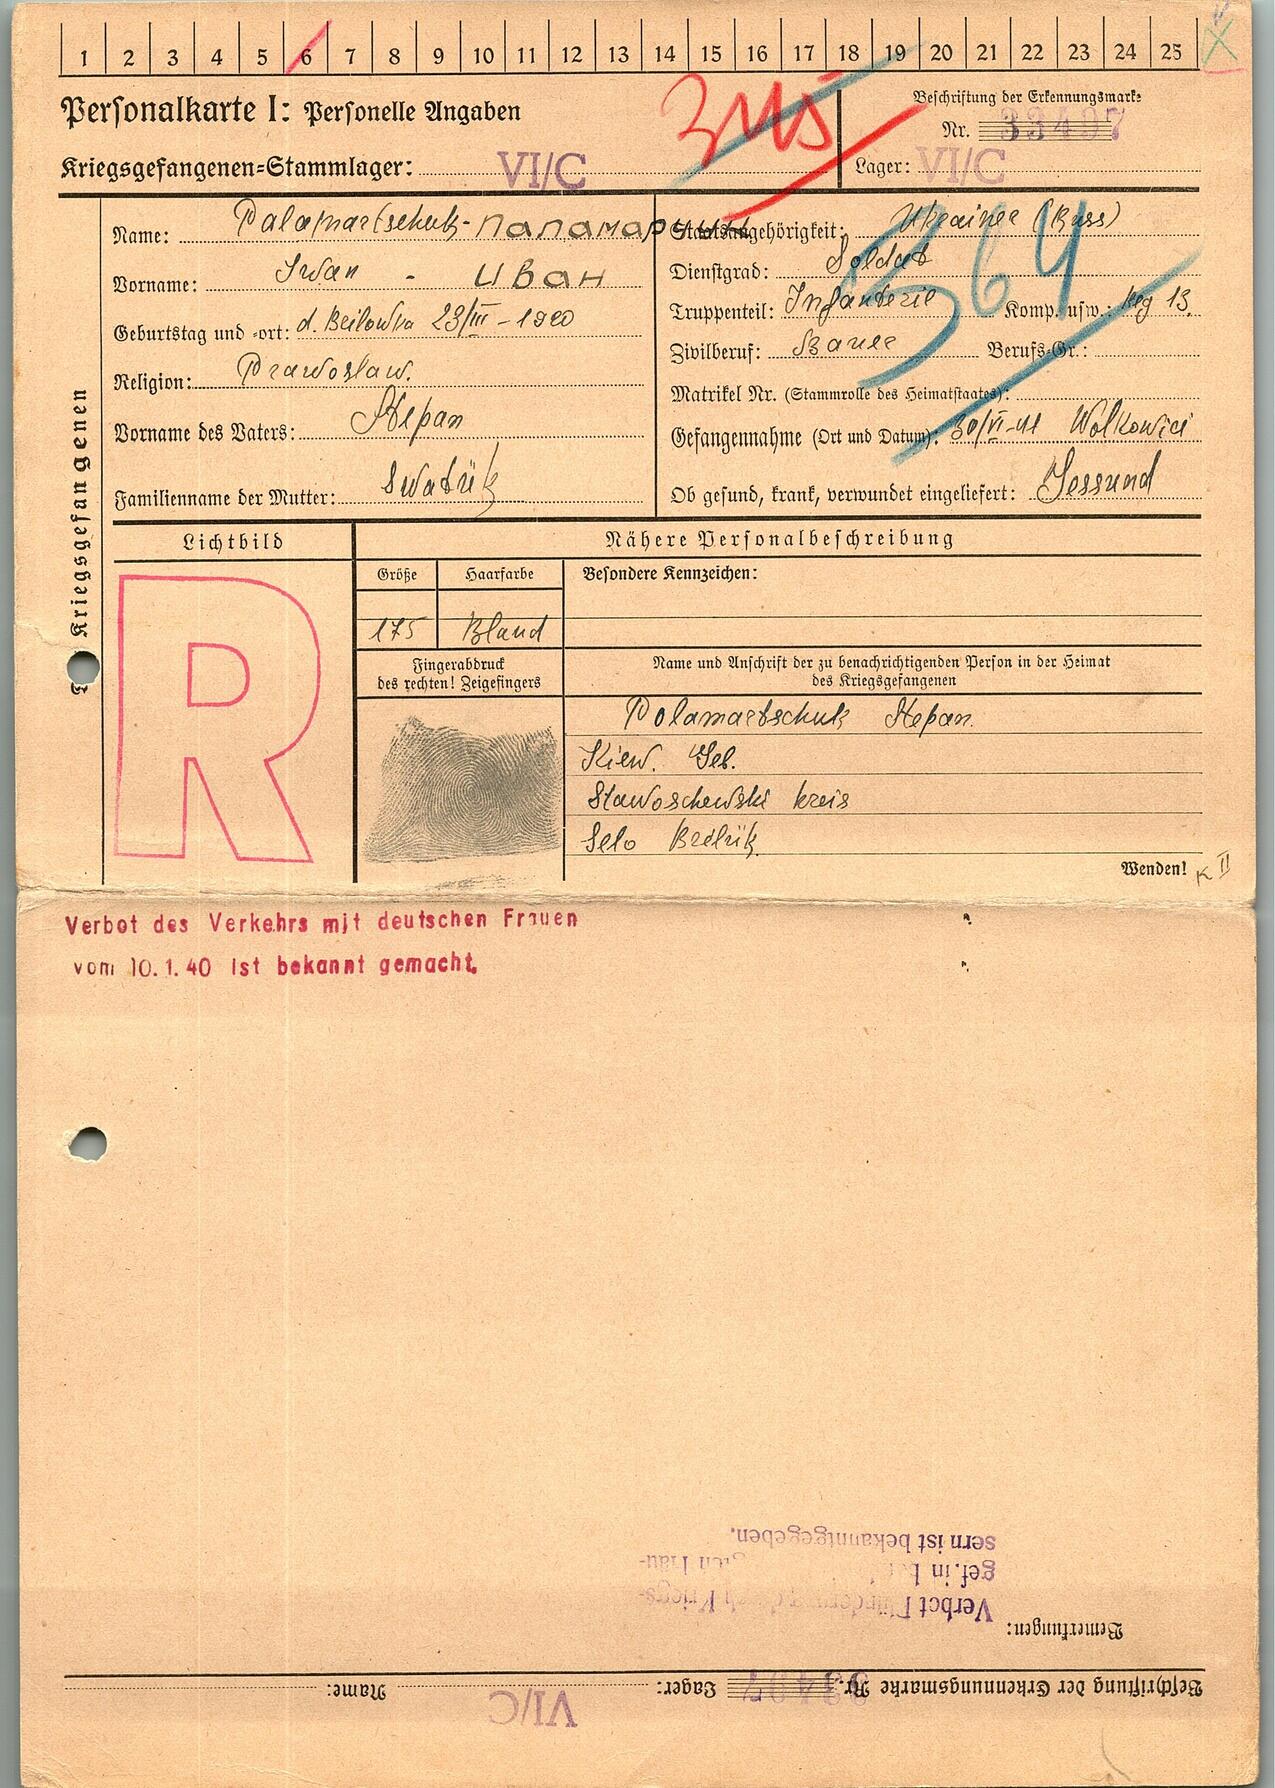 1 2 3 4 5 6 7 8 9 10 11 12 13 14 15 16 17 18 19 20 21 22 23 24 25
Personalkarte I: Personelle Angaben
Beschriftung der Erkennungsmarke
Nr. 33497
Kriegsgefangenen=Stammlager: VI/C
Lager: VI/C
Name: Palamartschuk - Паламарчук
Vorname: Iwan - Иван
Geburtstag und =ort: d. Beilowka 23/III - 1920
Religion: Prawoslaw.
Vorname des Vaters: Stepan
Familienname der Mutter:
Staatsangehörigkeit: Ukrainer (Russ)
Dienstgrad: Soldat
Truppenteil: Infanterie Komp. usw.: Reg 13.
Zivilberuf: Bauer Berufs=Gr.:
Matrikel Nr. (Stammrolle des Heimatstaates):
Gefangennahme (Ort und Datum): 30/VI-41 Wolkowici
Ob gesund, krank, verwundet eingeliefert: Gessund
364
Kriegsgefangenen
Lichtbild
R
Nähere Personalbeschreibung
Größe Haarfarbe Besondere Kennzeichen:
175 Bland
Fingerabdruck
des rechten! Zeigefingers
Name und Anschrift der zu benachrichtigenden Person in der Heimat
des Kriegsgefangenen
Polamartschuk Stepan.
Kiew. Geb.
Stawoschewski kreis
Selo
Wenden!
K II
Verbot des Verkehrs mit deutschen Frauen
vom 10.1.40 ist bekannt gemacht.
Beschriftung der Erkennungsmarke Nr. 33497 Lager: VI/C Name:
Bemerkungen:
Verbot Kriegs-
gef. in Häu-
sern ist bekanntgegeben.